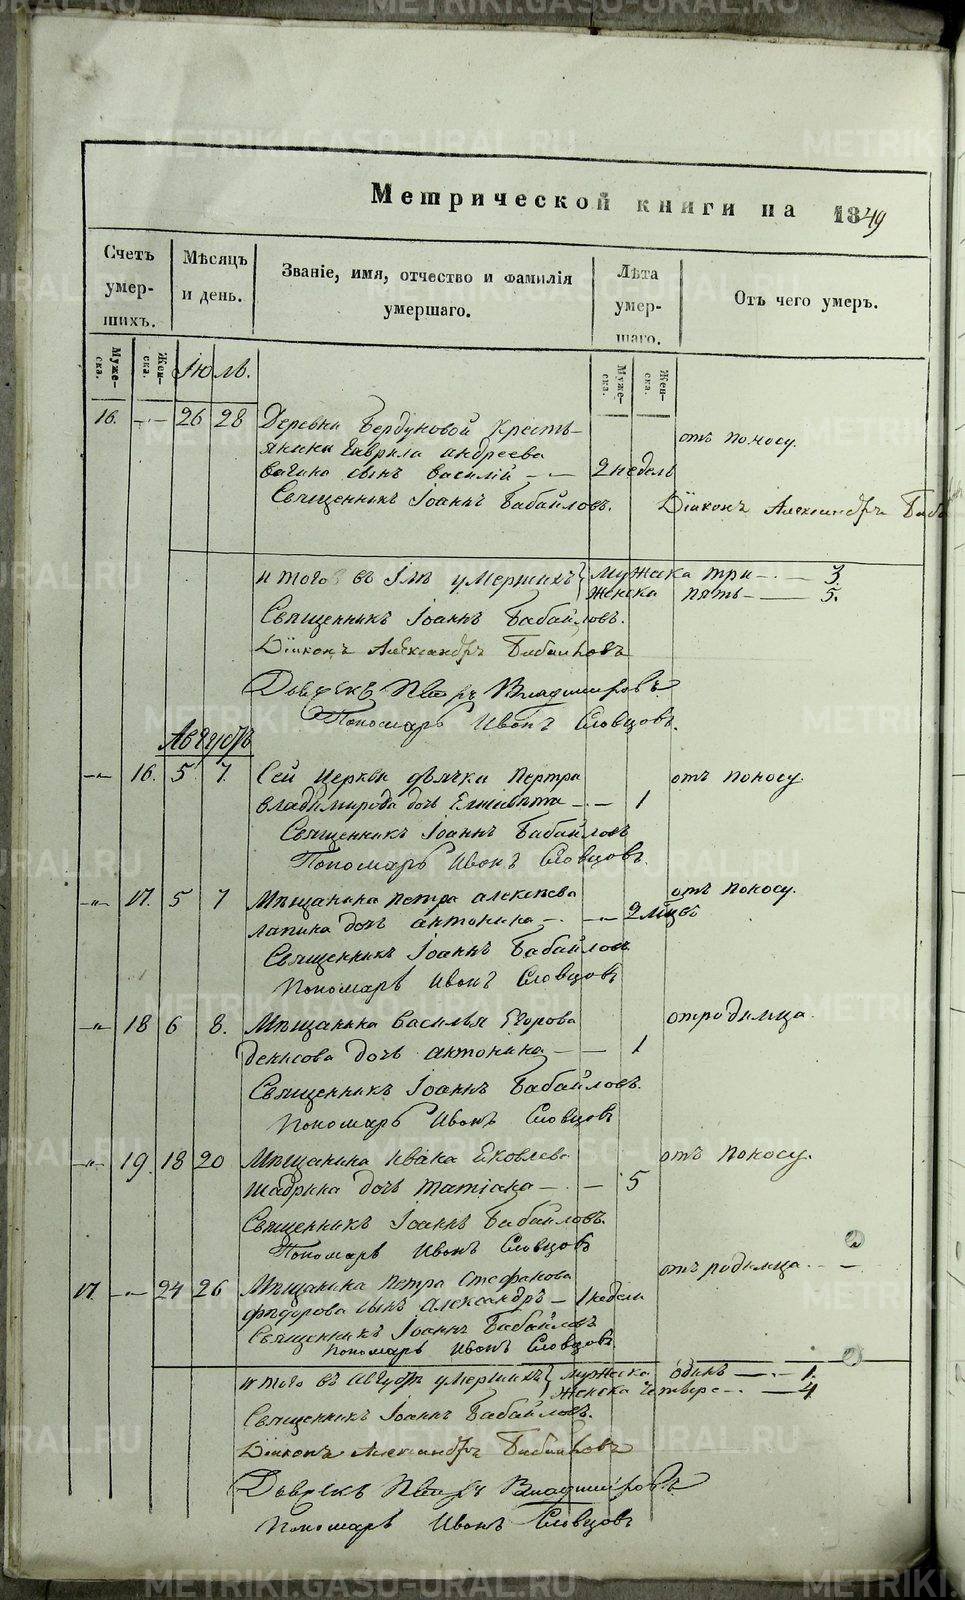 Метрической книги на 1849
Счетъ умер-шихъ.
Мѣсяцъ и день.
Званіе, имя, отчество и фамилія умершаго.
Лѣта умер-шаго.
Отъ чего умеръ.
Муже-ска.
Жен-ска.
Іюль.
Муже-ска.
Жен-ска.
16. 26 28 Деревни Бердуновой крестъ-
янина Гаврила андреева
вагина сынъ василій 2 недель отъ поносу.
Священникъ Іоаннъ Бабайловъ. Діаконъ Александръ
итого въ Іюлѣ умершихъ мужска три 3.
женска пять 5.
Священникъ Іоаннъ Бабайловъ.
Діаконъ Александръ Бабайловъ
Петръ Владимировъ
Пономарь Иванъ Словцовъ.
Августъ
16. 5 7. Сей церкви дьячка Петра
владимирова дочь Елисавета 1 отъ поносу.
Священникъ Іоаннъ Бабайловъ
Пономарь Иванъ Словцовъ.
17. 5 7 Мѣщанина петра алексѣева
лапина дочь антонина 2 мѣсяц отъ поносу.
Священникъ Іоаннъ Бабайловъ
Пономарь Иванъ Словцовъ
18 6 8. Мѣщанина василья Егорова
денисова дочь антонина 1 отродимца.
Священникъ Іоаннъ Бабайловъ.
Пономарь Иванъ Словцовъ
19. 18 20 Мѣщанина ивана Яковлева
шадрина дочь татіана 5 отъ поносу.
Священникъ Іоаннъ Бабайловъ.
Пономарь Иванъ Словцовъ
17. 24 26 Мѣщанина петра Стефанова
федорова сынъ александръ 1 недели отъ родимца
Священникъ Іоаннъ Бабайловъ
Пономарь Иванъ Словцовъ
итого въ августѣ умершихъ мужска одинъ 1.
женска четверо 4
Священникъ Іоаннъ Бабайловъ.
Діаконъ Александръ Бабайловъ
Петръ Владимировъ
Пономарь Иванъ Словцовъ
METRIKI.GASO-URAL.RU